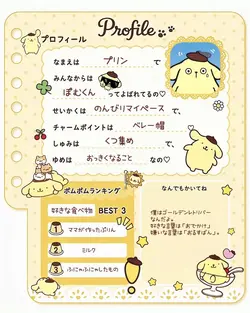 Profile
プロフィール
なまえは プリン で、
みんなからは
ぽむくん ってよばれてるの♡
せいかくは のんびりマイペース で、
チャームポイントは ベレー帽
しゅみは くつ集め で、
ゆめは おっきくなること なの♡
ポムポムランキング
好きな食べ物 BEST 3
1 ママが作ったぷりん
2 ミルク
3 ふにゃふにゃしたもの
なんでもかいてね
僕はゴールデンレトリバー
なんだよ。
好きな言葉は「おでかけ」
嫌いな言葉は「おるすばん」。